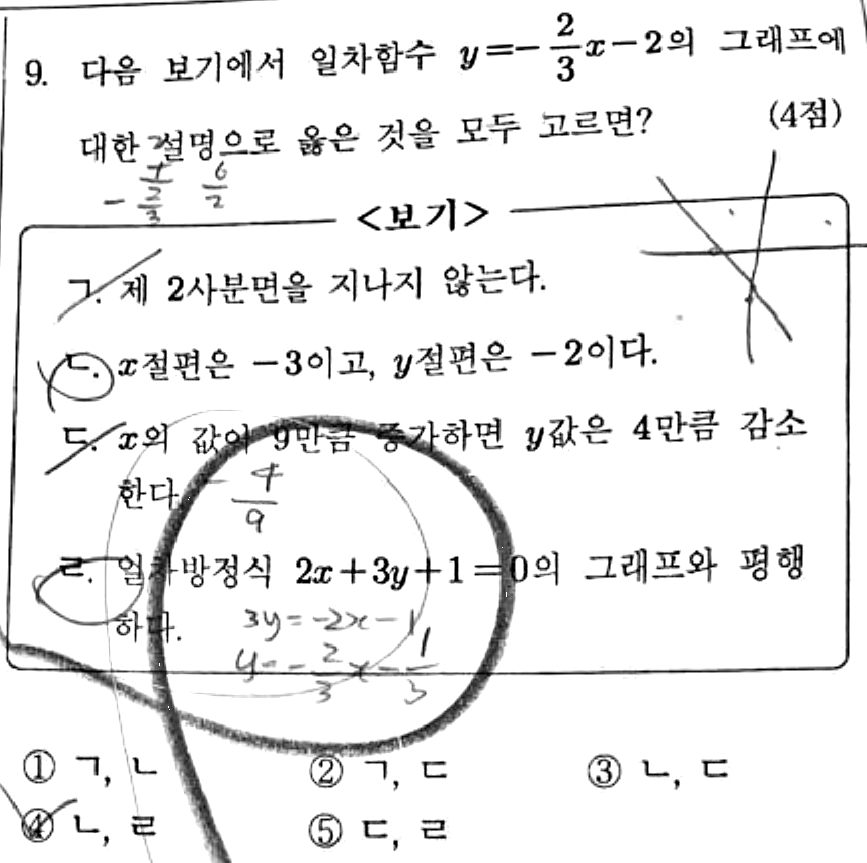 9. 다음 보기에서 일차함수 y=-2/3x-2의 그래프에
대한 설명으로 옳은 것을 모두 고르면? (4점)
<보기>
ㄱ. 제 2사분면을 지나지 않는다.
ㄴ. x절편은 -3이고, y절편은 -2이다.
ㄷ. x의 값이 9만큼 증가하면 y값은 4만큼 감소
한다.
-4/9
ㄹ. 일차방정식 2x+3y+1=0의 그래프와 평행
하다.
3y=-2x-1
y=-2/3x-1/3
① ㄱ, ㄴ ② ㄱ, ㄷ ③ ㄴ, ㄷ
④ ㄴ, ㄹ ⑤ ㄷ, ㄹ